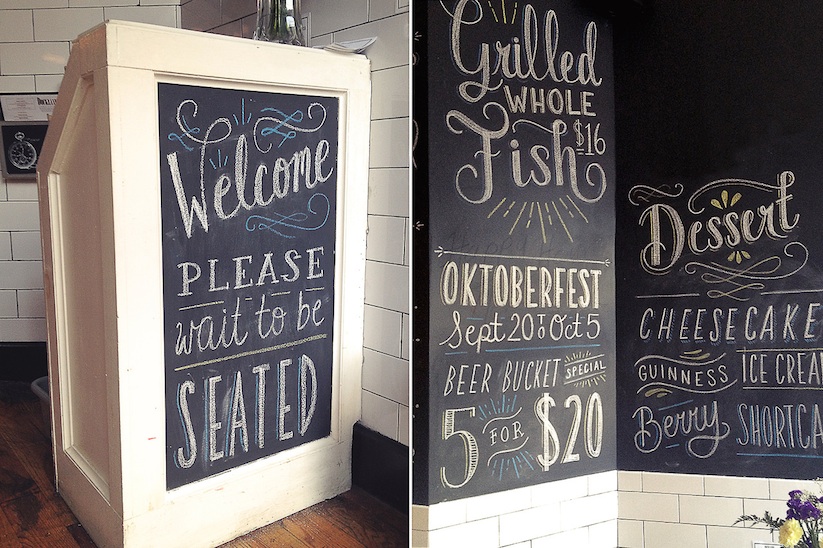 Welcome
PLEASE
wait to be
SEATED
Grilled
WHOLE
Fish $16
OKTOBERFEST
Sept 20 TO Oct 5
BEER BUCKET SPECIAL
5 FOR $20
Dessert
CHEESECAKE
GUINNESS ICE CREA
Berry SHORTCA